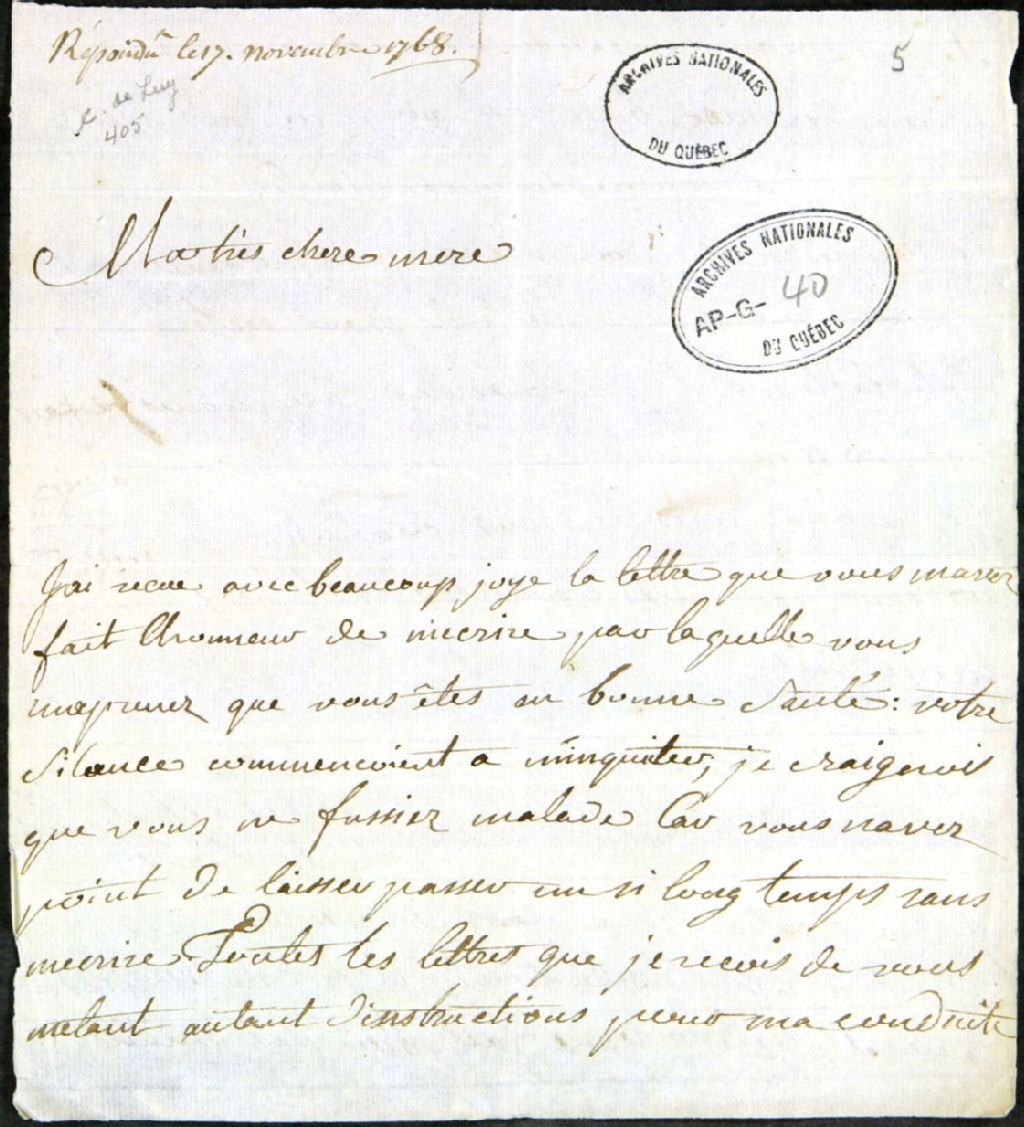 Répondû le 17. novembre 1768.
5
C. de Lery
405
ARCHIVES NATIONALES
DU QUÉBEC
Ma trés chere mere
ARCHIVES NATIONALES
AP-G- 40
DU QUÉBEC
J'ai recue avec beaucoup joye la lettre que vous mavez
fait lhonneur de mecrire par laquelle vous
maprenez que vous êtes en bonne santé: votre
silance commencoient a minquiter, je craignois
que vous ne fussiez malade Car vous navez
point de laisser passer un si long temps sans
mecrire Toutes les lettres que je recois de vous
metant autant dinstructions pour ma conduite